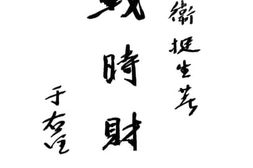 衛挺生著
戰時財
于右任